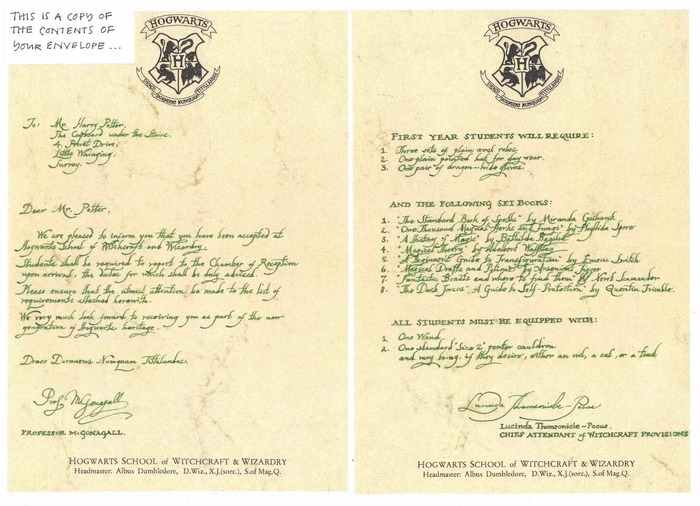 THIS IS A COPY OF
THE CONTENTS OF
YOUR ENVELOPE ...
HOGWARTS
H
DRACO DORMIENS NUNQUAM TITILLANDUS
To: Mr. Harry Potter,
The Cupboard under the Stairs,
4, Privet Drive,
Little Whinging,
Surrey.
Dear Mr. Potter,
We are pleased to inform you that you have been accepted at
Hogwarts School of Witchcraft and Wizardry.
Students shall be required to report to the Chamber of Reception
upon arrival, the dates for which shall be duly advised.
Please ensure that the utmost attention be made to the list of
requirements attached herewith.
We very much look forward to receiving you as part of the new
generation of Hogwarts heritage.
Draco Dormiens Nunquam Titillandus.
Prof. McGonagall
PROFESSOR McGONAGALL.
HOGWARTS SCHOOL of WITCHCRAFT & WIZARDRY
Headmaster: Albus Dumbledore, D.Wiz., X.J.(sorc.), S.of Mag.Q.
HOGWARTS
H
DRACO DORMIENS NUNQUAM TITILLANDUS
FIRST YEAR STUDENTS WILL REQUIRE:
1. Three sets of plain work robes
2. One plain pointed hat for day wear.
3. One pair of dragon-hide gloves.
AND THE FOLLOWING SET BOOKS:
1. "The Standard Book of Spells" by Miranda Goshawk
2. "One Thousand Magical Herbs and Fungi" by Phyllida Spore
3. "A History of Magic" by Bathilda Bagshot
4. "Magical Theory" by Adalbert Waffling
5. "A Beginners' Guide to Transfiguration" by Emeric Switch
6. "Magical Drafts and Potions" by Arsenius Jigger
7. "Fantastic Beasts and where to find Them" by Newt Scamander
8. "The Dark Forces: A Guide to Self-Protection" by Quentin Trimble.
ALL STUDENTS MUST BE EQUIPPED WITH:
1. One Wand
2. One Standard "Size 2" pewter cauldron
and may bring, if they desire, either an owl, a cat, or a toad
Lucinda Thomsonicle-Pocus
Lucinda Thomsonicle-Pocus,
CHIEF ATTENDANT of WITCHCRAFT PROVISIONS
HOGWARTS SCHOOL of WITCHCRAFT & WIZARDRY
Headmaster: Albus Dumbledore, D.Wiz., X.J.(sorc.), S.of Mag.Q.